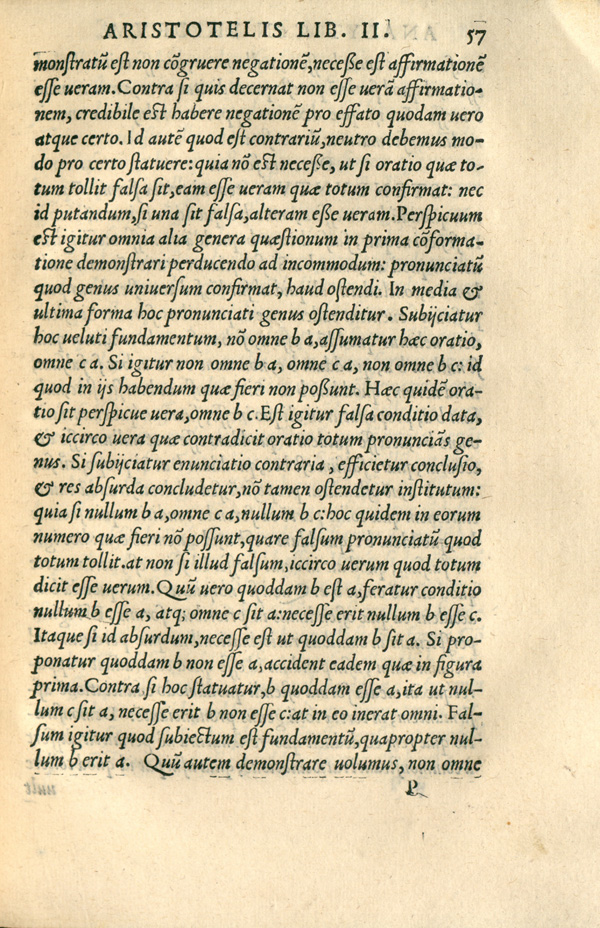 ARISTOTELIS LIB. II. 57
monſtratũ eſt non cõgruere negationẽ, neceſſe eſt affirmationẽ
eſſe ueram. Contra ſi quis decernat non eſſe uerã affirmatio-
nem, credibile eſt habere negationẽ pro effato quodam uero
atque certo. Id autẽ quod eſt contrariũ, neutro debemus mo-
do pro certo ſtatuere: quia nõ eſt neceſſe, ut ſi oratio quæ to-
tum tollit falſa ſit, eam eſſe ueram quæ totum confirmat: nec
id putandum, ſi una ſit falſa, alteram eſſe ueram. Perſpicuum
eſt igitur omnia alia genera quæſtionum in prima cõforma-
tione demonſtrari perducendo ad incommodum: pronunciatũ
quod genus uniuerſum confirmat, haud oſtendi. In media &
ultima forma hoc pronunciati genus oſtenditur. Subijciatur
hoc ueluti fundamentum, nõ omne b a, aſſumatur hæc oratio,
omne c a. Si igitur non omne b a, omne c a, non omne b c: id
quod in ijs habendum quæ fieri non poſſunt. Hæc quidẽ ora-
tio ſit perſpicue uera, omne b c. Eſt igitur falſa conditio data,
& iccirco uera quæ contradicit oratio totum pronunciãs ge-
nus. Si ſubijciatur enunciatio contraria, efficietur concluſio,
& res abſurda concludetur, nõ tamen oſtendetur inſtitutum:
quia ſi nullum b a, omne c a, nullum b c: hoc quidem in eorum
numero quæ fieri nõ poſſunt, quare falſum pronunciatũ quod
totum tollit. at non ſi illud falſum, iccirco uerum quod totum
dicit eſſe uerum. Quũ uero quoddam b eſt a, feratur conditio
nullum b eſſe a, atq; omne c ſit a: neceſſe erit nullum b eſſe c.
Itaque ſi id abſurdum, neceſſe eſt ut quoddam b ſit a. Si pro-
ponatur quoddam b non eſſe a, accident eadem quæ in figura
prima. Contra ſi hoc ſtatuatur, b quoddam eſſe a, ita ut nul-
lum c ſit a, neceſſe erit b non eſſe c: at in eo inerat omni. Fal-
ſum igitur quod ſubiectum eſt fundamentũ, quapropter nul-
lum b erit a. Quũ autem demonſtrare uolumus, non omne
P